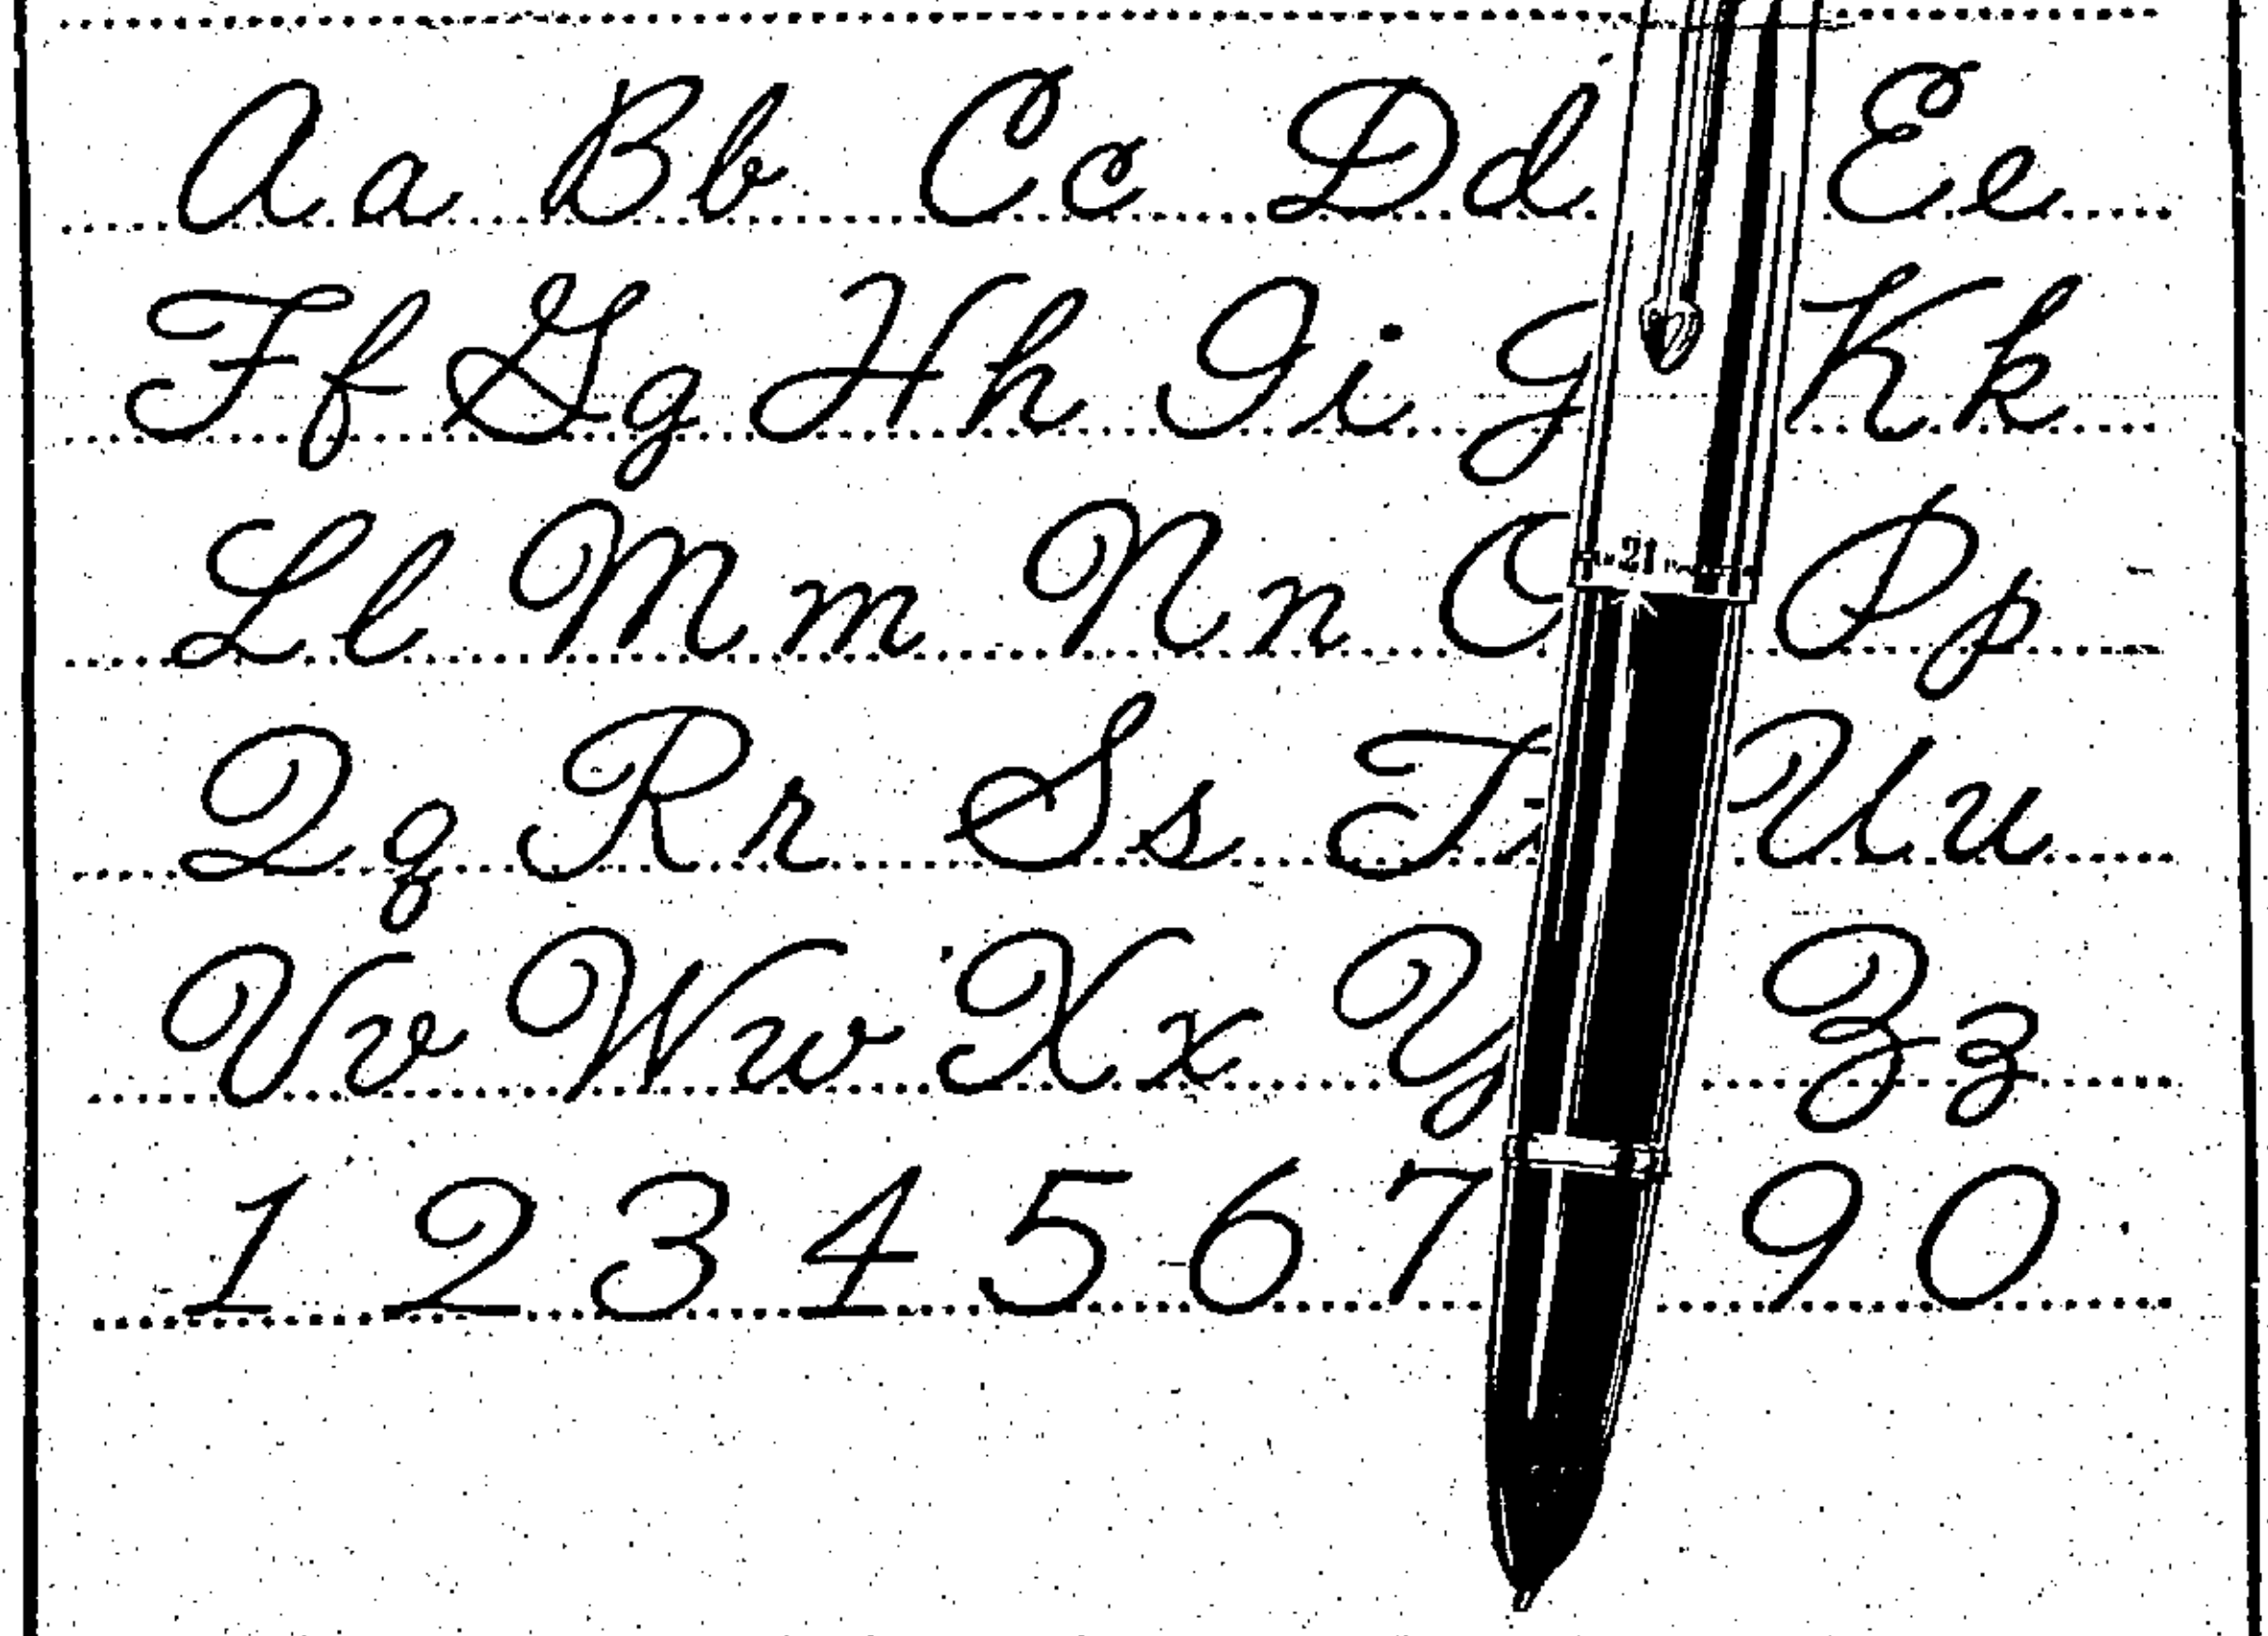 Aa Bb Cc Dd Ee
Ff Gg Hh Ii J Kk
Ll Mm Nn O Pp
Qq Rr Ss T Uu
Vv Ww Xx Y Zz
1 2 3 4 5 6 7 9 0
21